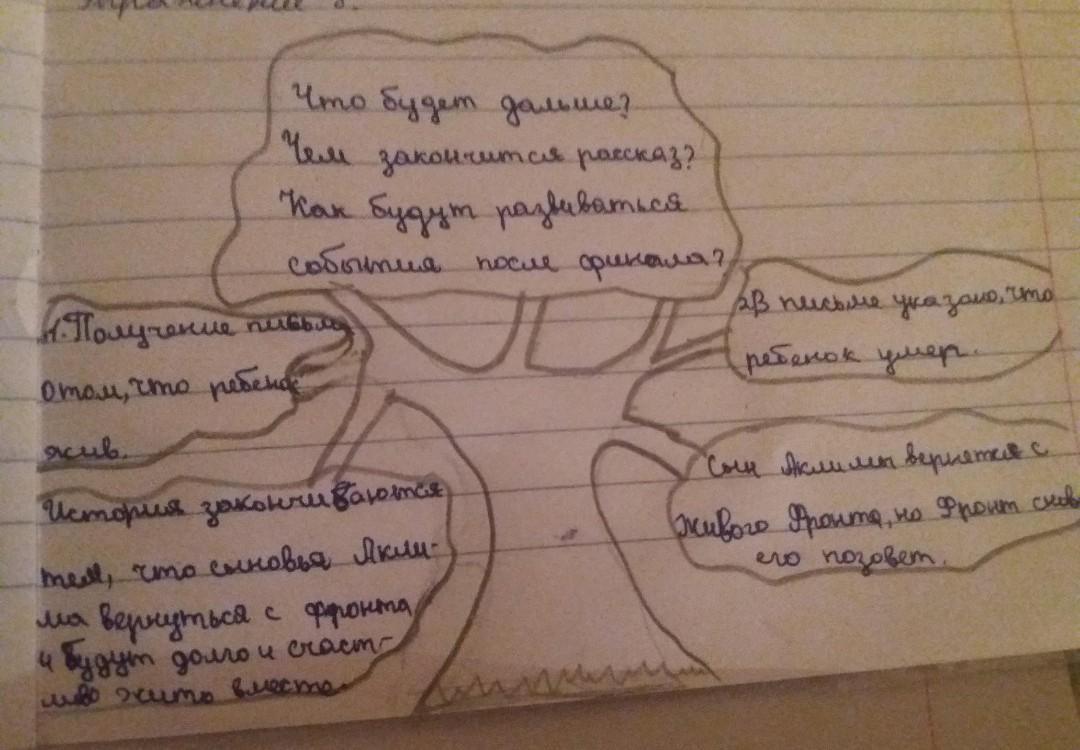 Упражнение 8.
Что будет дальше?
Чем закончится рассказ?
Как будут развиваться
события после финала?
1. Получение письма
о том, что ребенок
жив.
2 В письме указано, что
ребенок умер.
История закончиваются
тем, что сыновья Акли-
ма вернуться с ффронта
и будут долго и счаст-
ливо жить вместе.
Сын Аклимы вернятся с
живого Фронта, но Фронт снова
его позовет.